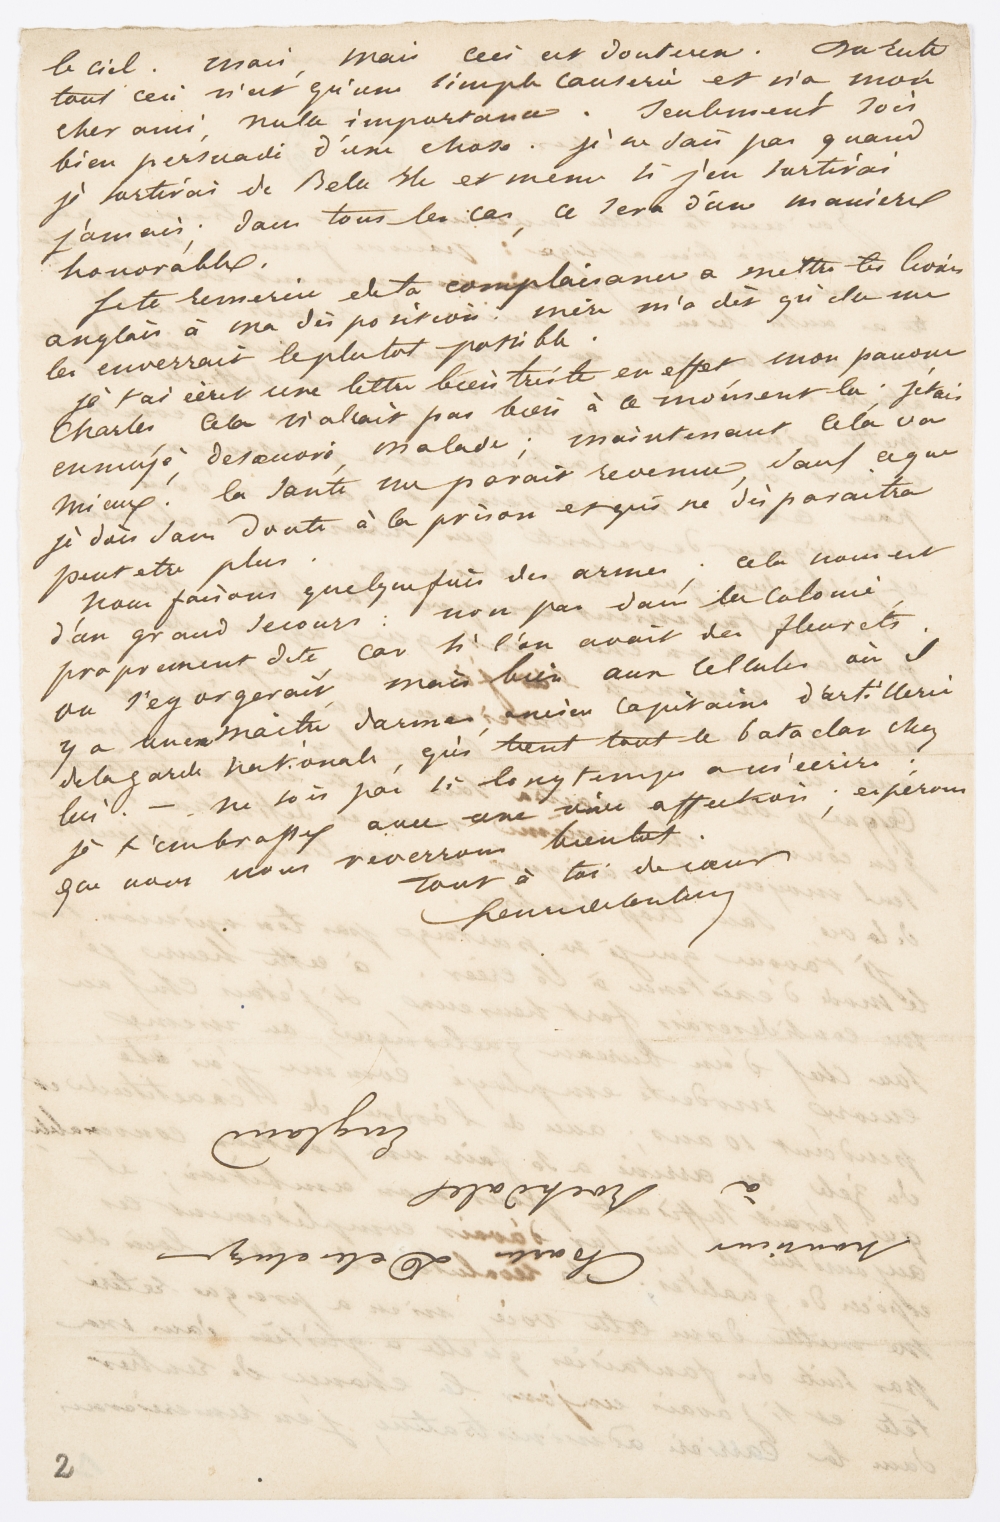 le ciel. mais, mais ceci est douteux. Du reste
tout ceci n'est qu'une simple causerie et n'a, mon
cher ami, nulle importance. Seulement sois
bien persuadé d'une chose. je ne sais pas quand
je sortirai de Belle Ile et même si j'en sortirai
jamais; dans tous les cas, ce sera d'une manière
honorable.
Je te remercie de ta complaisance a mettre tes livres
anglais à ma disposition. mère m'a dit qu'elle me
les enverrait le plutot possible.
je t'ai écrit une lettre bien triste en effet mon pauvre
Charles Cela n'allait pas bien à ce moment là; j'étais
ennuyé, desœuvré, malade; maintenant cela va
mieux. la santé me parait revenue, sauf ce que
je dois sans doute à la prison et qui ne disparaitra
peut etre plus.
Nous faisons quelquefois des armes; cela nous est
d'un grand secours: non pas dans la Colonie,
proprement dite, car si l'on avait des fleurets.
on s'egorgerait, mais bien aux Cellules où il
y a un maitre d'armes, ancien Capitaine d'artillerie
de la garde nationale, qui tient tout le bataclan chez
lui. — ne sois pas si longtemps a m'écrire;
je t'embrasse avec une vive affection; espérons
que nous nous reverrons bientot.
Tout à toi de cœur
Henri Delescluze
Monsieur Charles Delescluze
à Rochdale
England
2